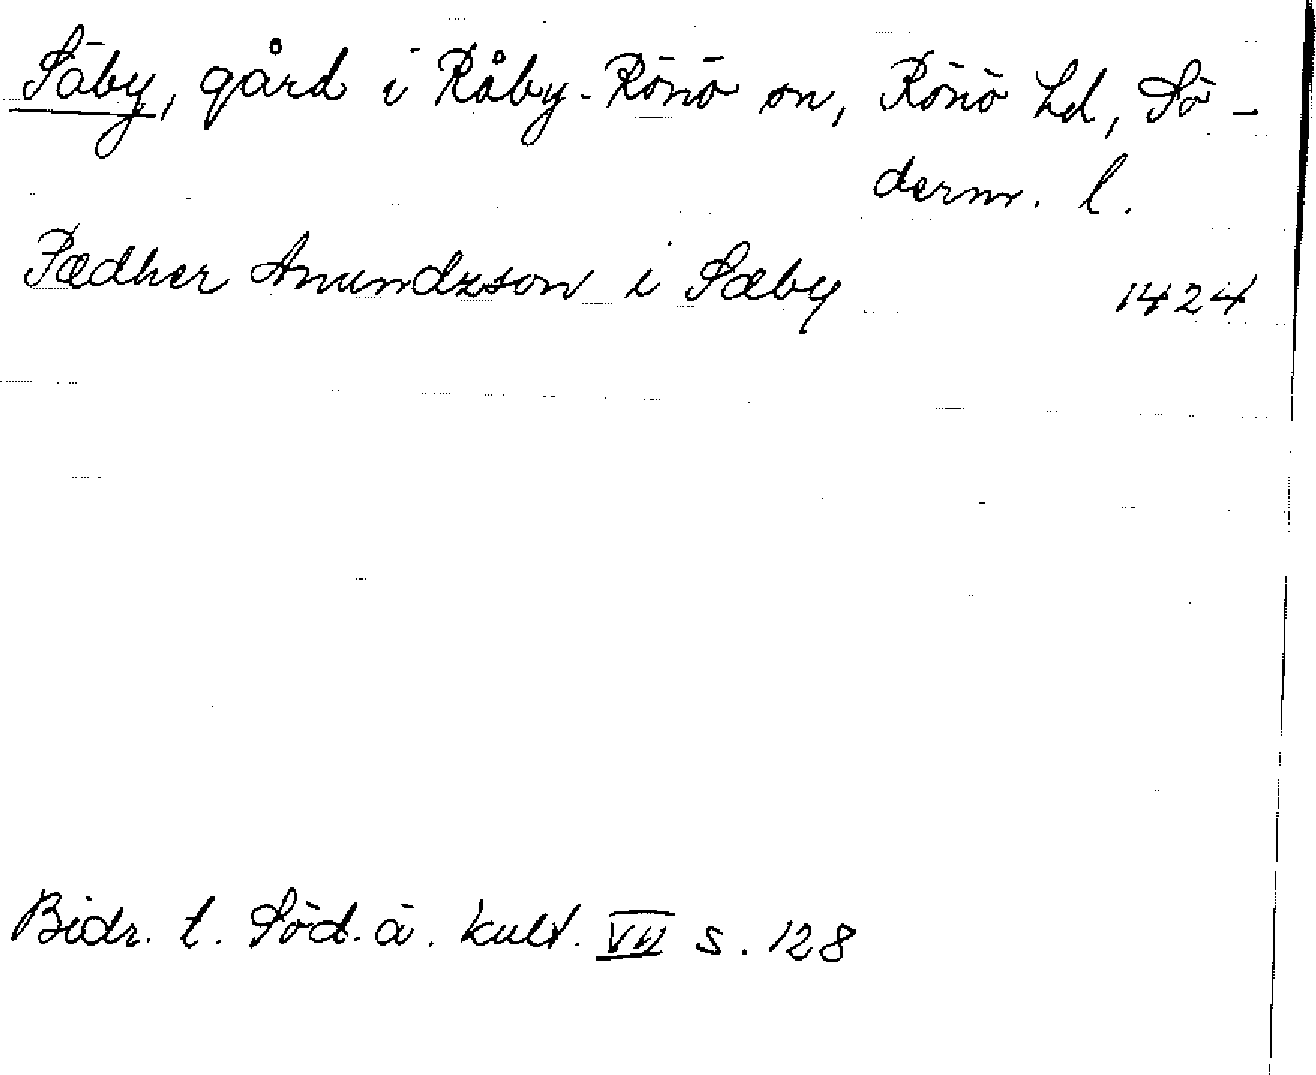 Säby, gård i Råby-Rönö sn, Rönö hd, Sö-
derm. l.
Pædher Amundzson i Sæby 1424
Bidr. t. Söd. ä. kult. VII s. 128